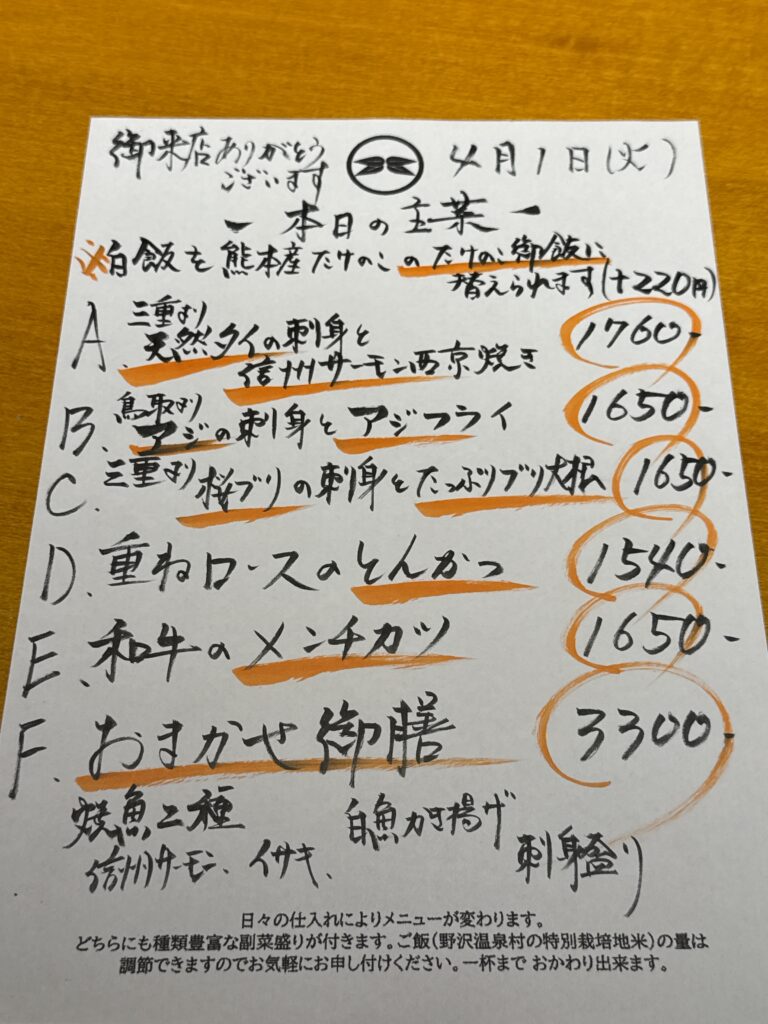 御来店ありがとう
ございます
4月1日(火)
ー 本日の主菜 ー
※白飯を熊本産たけのこのたけのこ御飯に
替えられます(+220円)
A. 三重より
天然タイの刺身と
信州サーモン西京焼き 1760-
B. 鳥取より
アジの刺身とアジフライ 1650-
C. 三重より 桜ブリの刺身とたっぷりブリ大根 1650-
D. 重ねロースのとんかつ 1540-
E. 和牛のメンチカツ 1650-
F. おまかせ御膳 3300-
焼魚二種 白魚かき揚げ
信州サーモン、イサキ、 刺身盛り
日々の仕入れによりメニューが変わります。
どちらにも種類豊富な副菜盛りが付きます。ご飯(野沢温泉村の特別栽培地米)の量は
調節できますのでお気軽にお申し付けください。一杯まで おかわり出来ます。